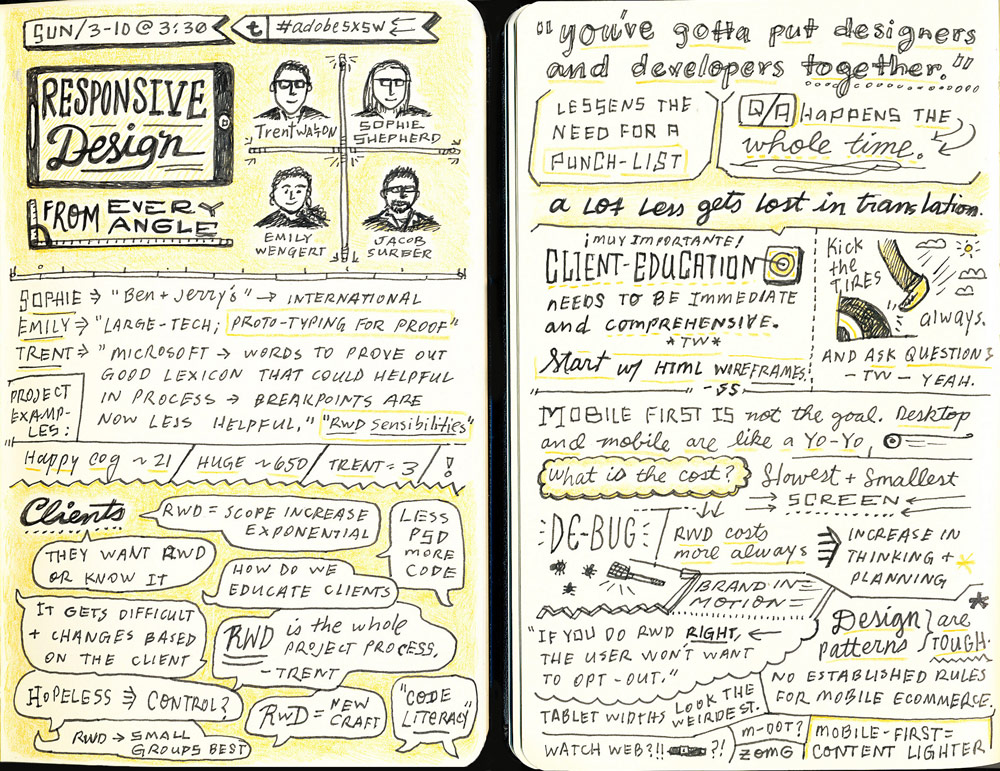 SUN/3-10@3:30
t #adobeSXSW
RESPONSIVE
Design
FROM EVERY
ANGLE
Trent Walton
SOPHIE
SHEPHERD
EMILY
WENGERT
JACOB
SURBER
SOPHIE → "Ben + Jerry's" → INTERNATIONAL
EMILY → "LARGE-TECH; PROTO-TYPING FOR PROOF"
TRENT → "MICROSOFT → WORDS TO PROVE OUT
GOOD LEXICON THAT COULD HELPFUL
IN PROCESS → BREAKPOINTS ARE
NOW LESS HELPFUL," "RWD Sensibilities"
PROJECT
EXAMP-
LES:
Happy Cog ~ 21 / HUGE ~ 650 / TRENT = 3 / !
Clients
RWD = SCOPE INCREASE
EXPONENTIAL
LESS
PSD
MORE
CODE
THEY WANT RWD
OR KNOW IT
HOW DO WE
EDUCATE CLIENTS
IT GETS DIFFICULT
+ CHANGES BASED
ON THE CLIENT
RWD is the whole
PROJECT PROCESS,
- TRENT
HOPELESS → CONTROL?
RWD = NEW
CRAFT
"CODE
LITERACY"
RWD → SMALL
GROUPS BEST
"you've gotta put designers
and developers together."
LESSENS THE
NEED FOR A
PUNCH-LIST
Q/A HAPPENS THE
whole time.
a Lot Less gets Lost in translation.
¡MUY IMPORTANTE!
CLIENT-EDUCATION
NEEDS TO BE IMMEDIATE
and COMPREHENSIVE.
*TW*
Start w/ HTML WIREFRAMES.
-SS-
Kick
the
TIRES
always.
AND ASK QUESTIONS
- TW - YEAH.
MOBILE FIRST IS not the goal. Desktop
and mobile are like a Yo-Yo,
What is the cost?
Slowest + Smallest
→ SCREEN ←
DE-BUG
RWD costs
more always
INCREASE IN
THINKING +
PLANNING
BRAND IN
MOTION
"IF YOU DO RWD RIGHT, ←
THE USER WON'T WANT
TO OPT-OUT."
Design
patterns
are
TOUGH.
NO ESTABLISHED RULES
FOR MOBILE ECOMMERCE.
TABLET WIDTHS LOOK THE
WEIRDEST.
WATCH WEB?!! ?!
m-DOT?
ZOMG
MOBILE-FIRST=
CONTENT LIGHTER